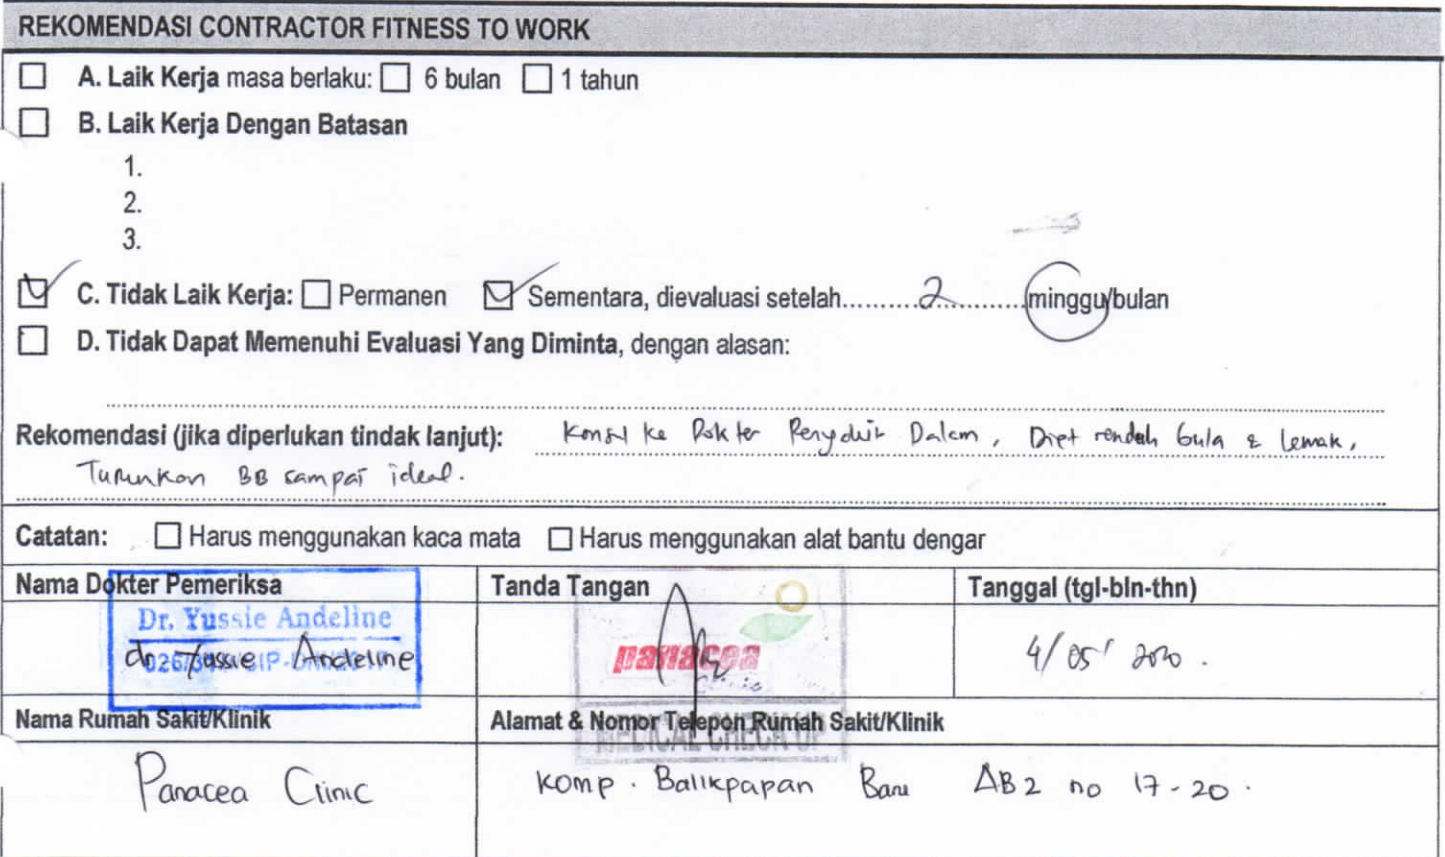 REKOMENDASI CONTRACTOR FITNESS TO WORK
A. Laik Kerja masa berlaku: 6 bulan 1 tahun
B. Laik Kerja Dengan Batasan
1.
2.
3.
C. Tidak Laik Kerja: Permanen Sementara, dievaluasi setelah.........2............minggu/bulan
D. Tidak Dapat Memenuhi Evaluasi Yang Diminta, dengan alasan:
Rekomendasi (jika diperlukan tindak lanjut): Konsul ke Dokter Penyakit Dalam, Diet rendah Gula & Lemak,
Turunkan BB sampai ideal.
Catatan: Harus menggunakan kaca mata Harus menggunakan alat bantu dengar
Nama Dokter Pemeriksa Tanda Tangan Tanggal (tgl-bln-thn)
Dr. Yussie Andeline
dr. Yussie Andeline
panacea
Clinic
4/05/2020.
Nama Rumah Sakit/Klinik Alamat & Nomor Telepon Rumah Sakit/Klinik
MEDICAL CHECK UP
Panacea Clinic Komp. Balikpapan Baru AB2 no 17-20.